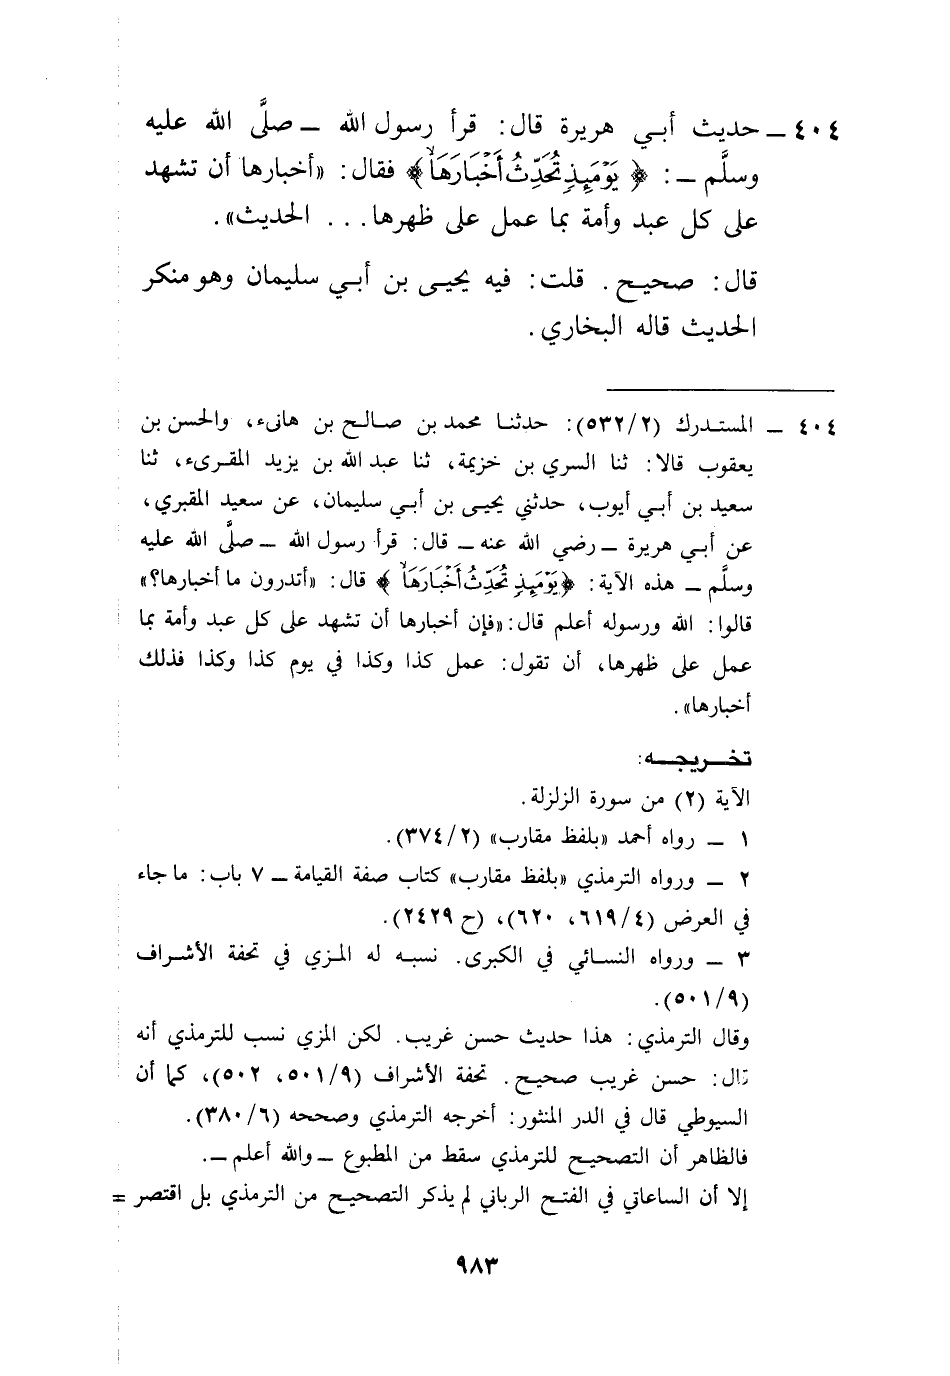 ٤٠٤ ــ حديث أبي هريرة قال: قرأ رسول الله ــ صلَّى الله عليه
وسلَّم ــ: ﴿ يَوْمَئِذٍ تُحَدِّثُ أَخْبَارَهَا ﴾ فقال: «أخبارها أن تشهد
على كل عبد وأمة بما عمل على ظهرها... الحديث».
قال: صحيح. قلت: فيه يحيى بن أبي سليمان وهو منكر
الحديث قاله البخاري.
٤٠٤ ــ المستدرك (٥٣٢/٢): حدثنا محمد بن صالح بن هانىء، والحسن بن
يعقوب قالا: ثنا السري بن خزيمة، ثنا عبد الله بن يزيد المقرىء، ثنا
سعيد بن أبي أيوب، حدثني يحيى بن أبي سليمان، عن سعيد المقبري،
عن أبي هريرة ــ رضي الله عنه ــ قال: قرأ رسول الله ــ صلَّى الله عليه
وسلَّم ــ هذه الآية: ﴿يَوْمَئِذٍ تُحَدِّثُ أَخْبَارَهَا ﴾ قال: «أتدرون ما أخبارها؟»
قالوا: الله ورسوله أعلم قال: «فإن أخبارها أن تشهد على كل عبد وأمة بما
عمل على ظهرها، أن تقول: عمل كذا وكذا في يوم كذا وكذا فذلك
أخبارها».
تخريجه:
الآية (٢) من سورة الزلزلة.
١ ــ رواه أحمد «بلفظ مقارب» (٣٧٤/٢).
٢ ــ ورواه الترمذي «بلفظ مقارب» كتاب صفة القيامة ــ ٧ باب: ما جاء
في العرض (٦١٩/٤، ٦٢٠)، (ح ٢٤٢٩).
٣ ــ ورواه النسائي في الكبرى. نسبه له المزي في تحفة الأشراف
(٥٠١/٩).
وقال الترمذي: هذا حديث حسن غريب. لكن المزي نسب للترمذي أنه
قال: حسن غريب صحيح. تحفة الأشراف (٥٠١/٩، ٥٠٢)، كما أن
السيوطي قال في الدر المنثور: أخرجه الترمذي وصححه (٣٨٠/٦).
فالظاهر أن التصحيح للترمذي سقط من المطبوع ــ والله أعلم ــ.
إلا أن الساعاتي في الفتح الرباني لم يذكر التصحيح من الترمذي بل اقتصر =
٩٨٣